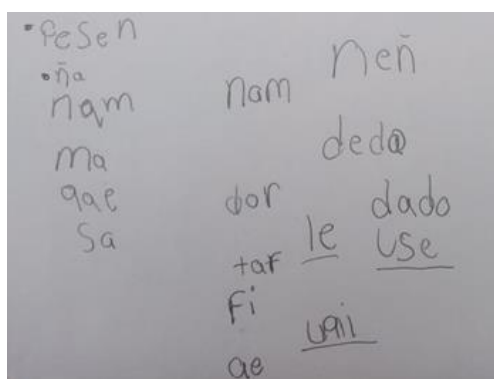 fesen
ña
nam
ma
gae
sa
nam
dor
tar
Fi
ae
neñ
deda
dado
le use